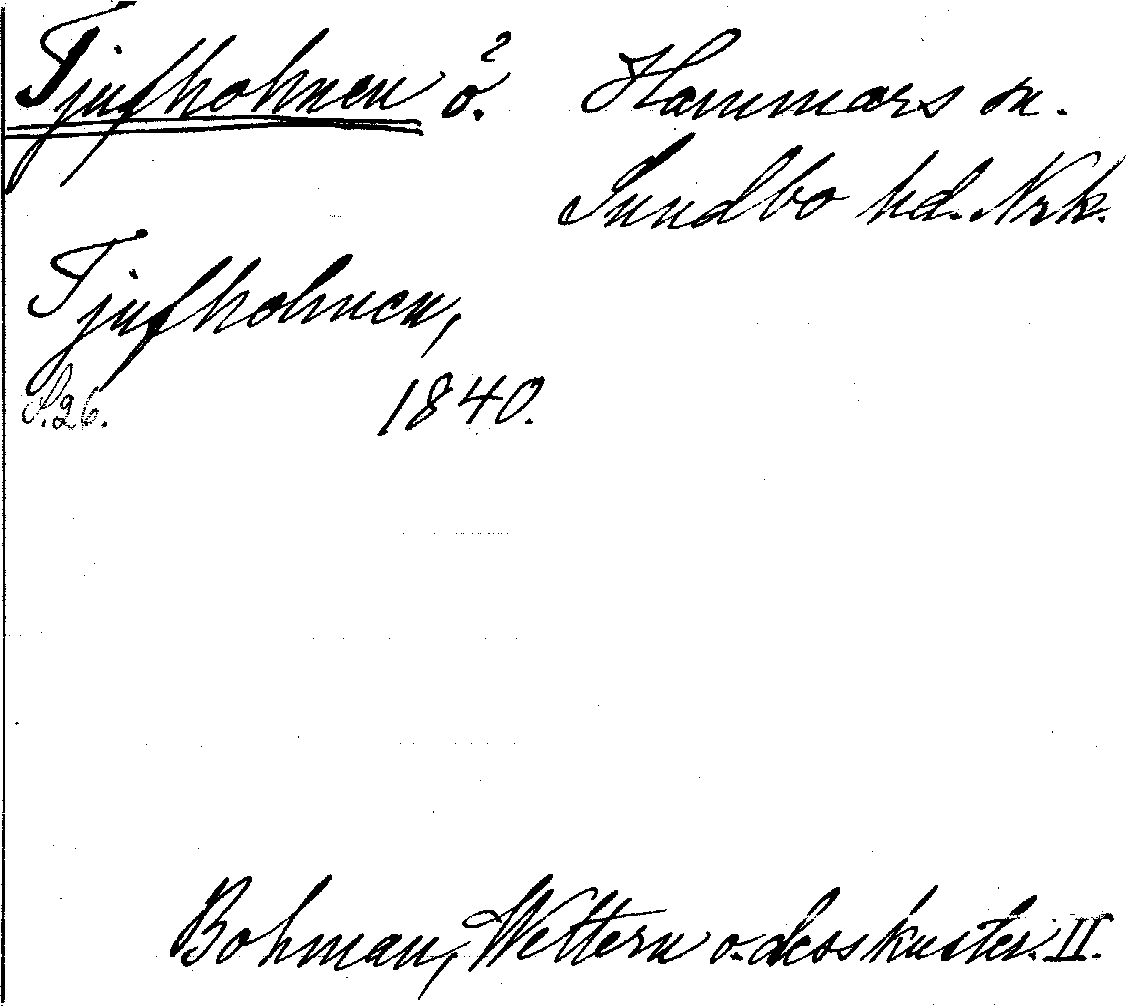 Tjufholmen ö. Hammars sn.
Sundbo hd. Nrk.
Tjufholmen,
S. 26. 1840.
Bohman, Wettern o. dess kuster. II.